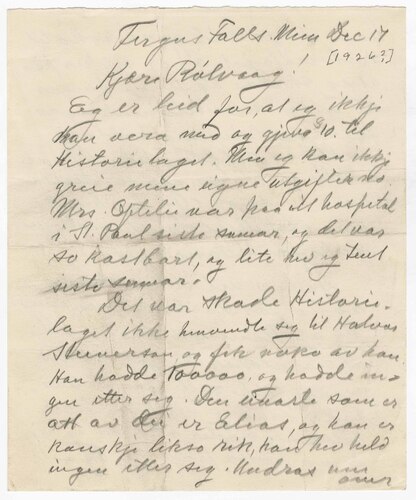 Fergus Falls. Minn Dec 17
[1926?]
Kjære Rölvaag!
Eg er leid for, at eg ikkje
kan vera med og gjeva $10. til
Historielaget. Men eg kan ikkje
greie mine eigne utgifter no.
Mrs. Optelie var paa et hospital
i St. Paul siste sumar, og det var
so kostbart, og lite hev eg tent
siste sumar.
Det var skade Historie-
laget ikke henvendte seg til Halvor
og fik noko av han.
Han hadde 100000, og hadde in-
gen etter seg. Den einaste som er
att av dei er Elias, og han er
kanskje likso rik, han hev held
ingen etter seg. Undras um